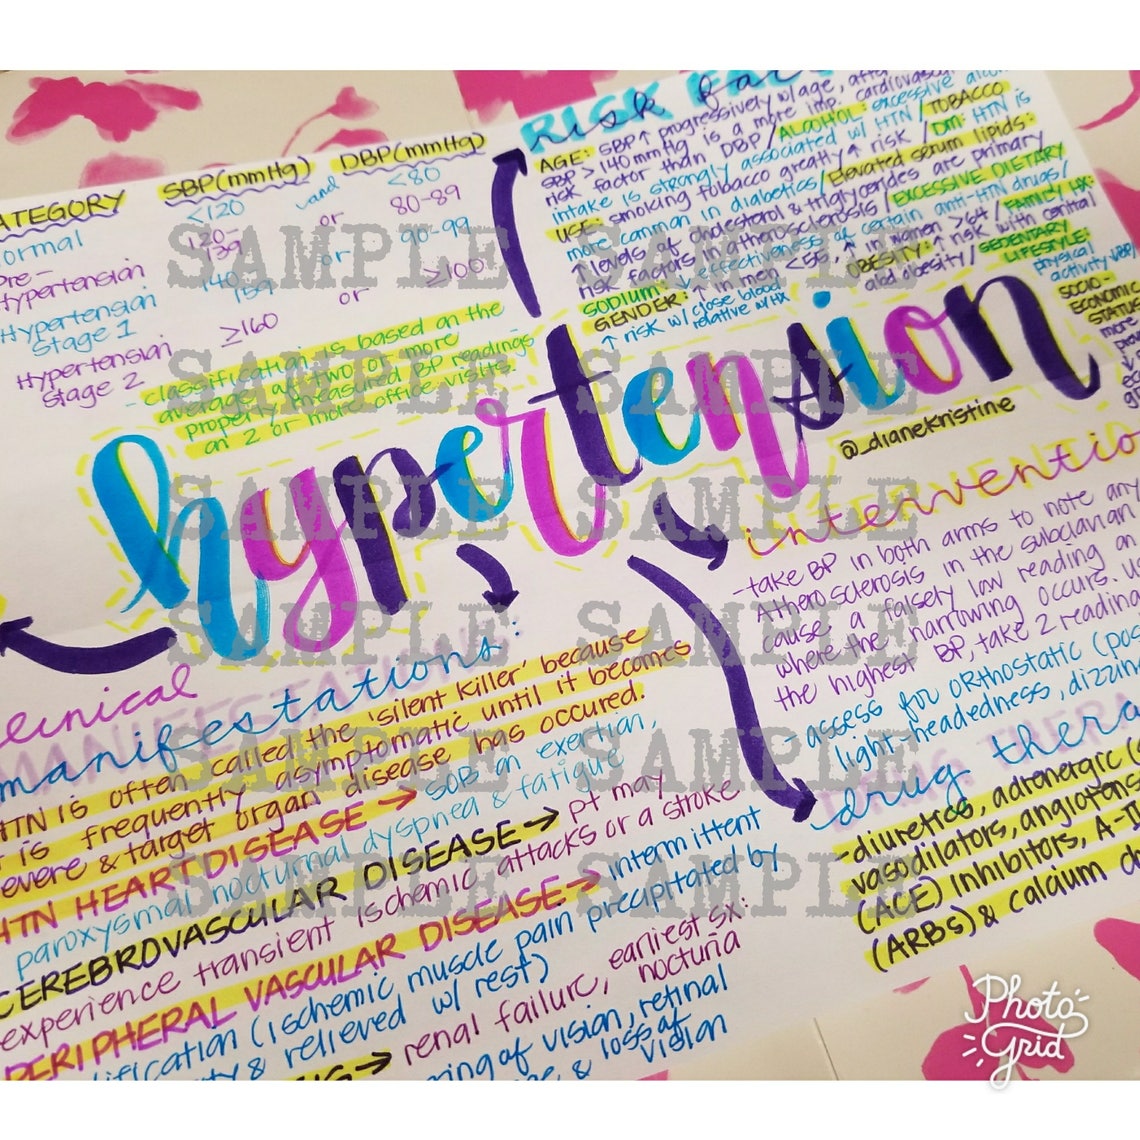 RISK
Risk fac
AGE: SBP↑ progressively w/age, after
SBP >140mmHg is a more imp. cardiovascular
risk factor than DBP/ALCOHOL: excessive
intake is strongly associated w/ HTN/TOBACCO
USE: smoking tobacco greatly ↑ risk/DM: HTN is
more common in diabetics/Elevated serum lipids:
↑ levels of cholesterol & triglycerides are primary
risk factors in atherosclerosis/EXCESSIVE DIETARY
SODIUM: ↓ effectiveness of certain anti-HTN drugs/
GENDER: ↑ in men <55, ↑ in women >64/FAMILY HX:
↑ risk w/ close blood
relative w/HX
OBESITY: ↑ risk with central
abd obesity/SEDENTARY
LIFESTYLE:
physical
activity
SOCIO-
ECONOMIC
STATUS
more
ATEGORY SBP(mmHg) DBP(mmHg)
ormal <120 and <80
Pre-
Hypertension 120-
139 or 80-89
Hypertension
Stage 1 140-
159 or 90-99
Hypertension
Stage 2 ≥160 or ≥100
- classification is based on the
average of two or more
properly measured BP readings
on 2 or more office visits.
hypertension
@_dianekristine
INTERVENTIO
interventio
- take BP in both arms to note any
Atherosclerosis in the subclavian
cause a falsely low reading on
where the narrowing occurs. U
the highest BP, take 2 reading
- assess for orthostatic (pos
light-headedness, dizzin
DRUG THERA
drug thera
- diuretics, adrenergic (
vasodilators, angiotens
(ACE) Inhibitors, A-II
(ARBs) & calcium ch
linical
MANIFESTATIONS:
manifestations:
HTN is often called the 'silent killer' because
it is frequently asymptomatic until it becomes
severe & target organ disease has occured.
HTN HEART DISEASE → SOB on exertion,
paroxysmal nocturnal dyspnea & fatigue
CEREBROVASCULAR DISEASE → pt may
experience transient ischemic attacks or a stroke
PERIPHERAL VASCULAR DISEASE → intermittent
dification (ischemic muscle pain precipitated by
ty & relieved w/ rest)
→ renal failure, earliest sx:
nocturia
ring of vision, retinal
& loss of
vision
SAMPLE SAMPLE
SAMPLE SAMPLE
SAMPLE SAMPLE
SAMPLE SAMPLE
SAMPLE SAMPLE
SAMPLE SAMPLE
Photo
Grid